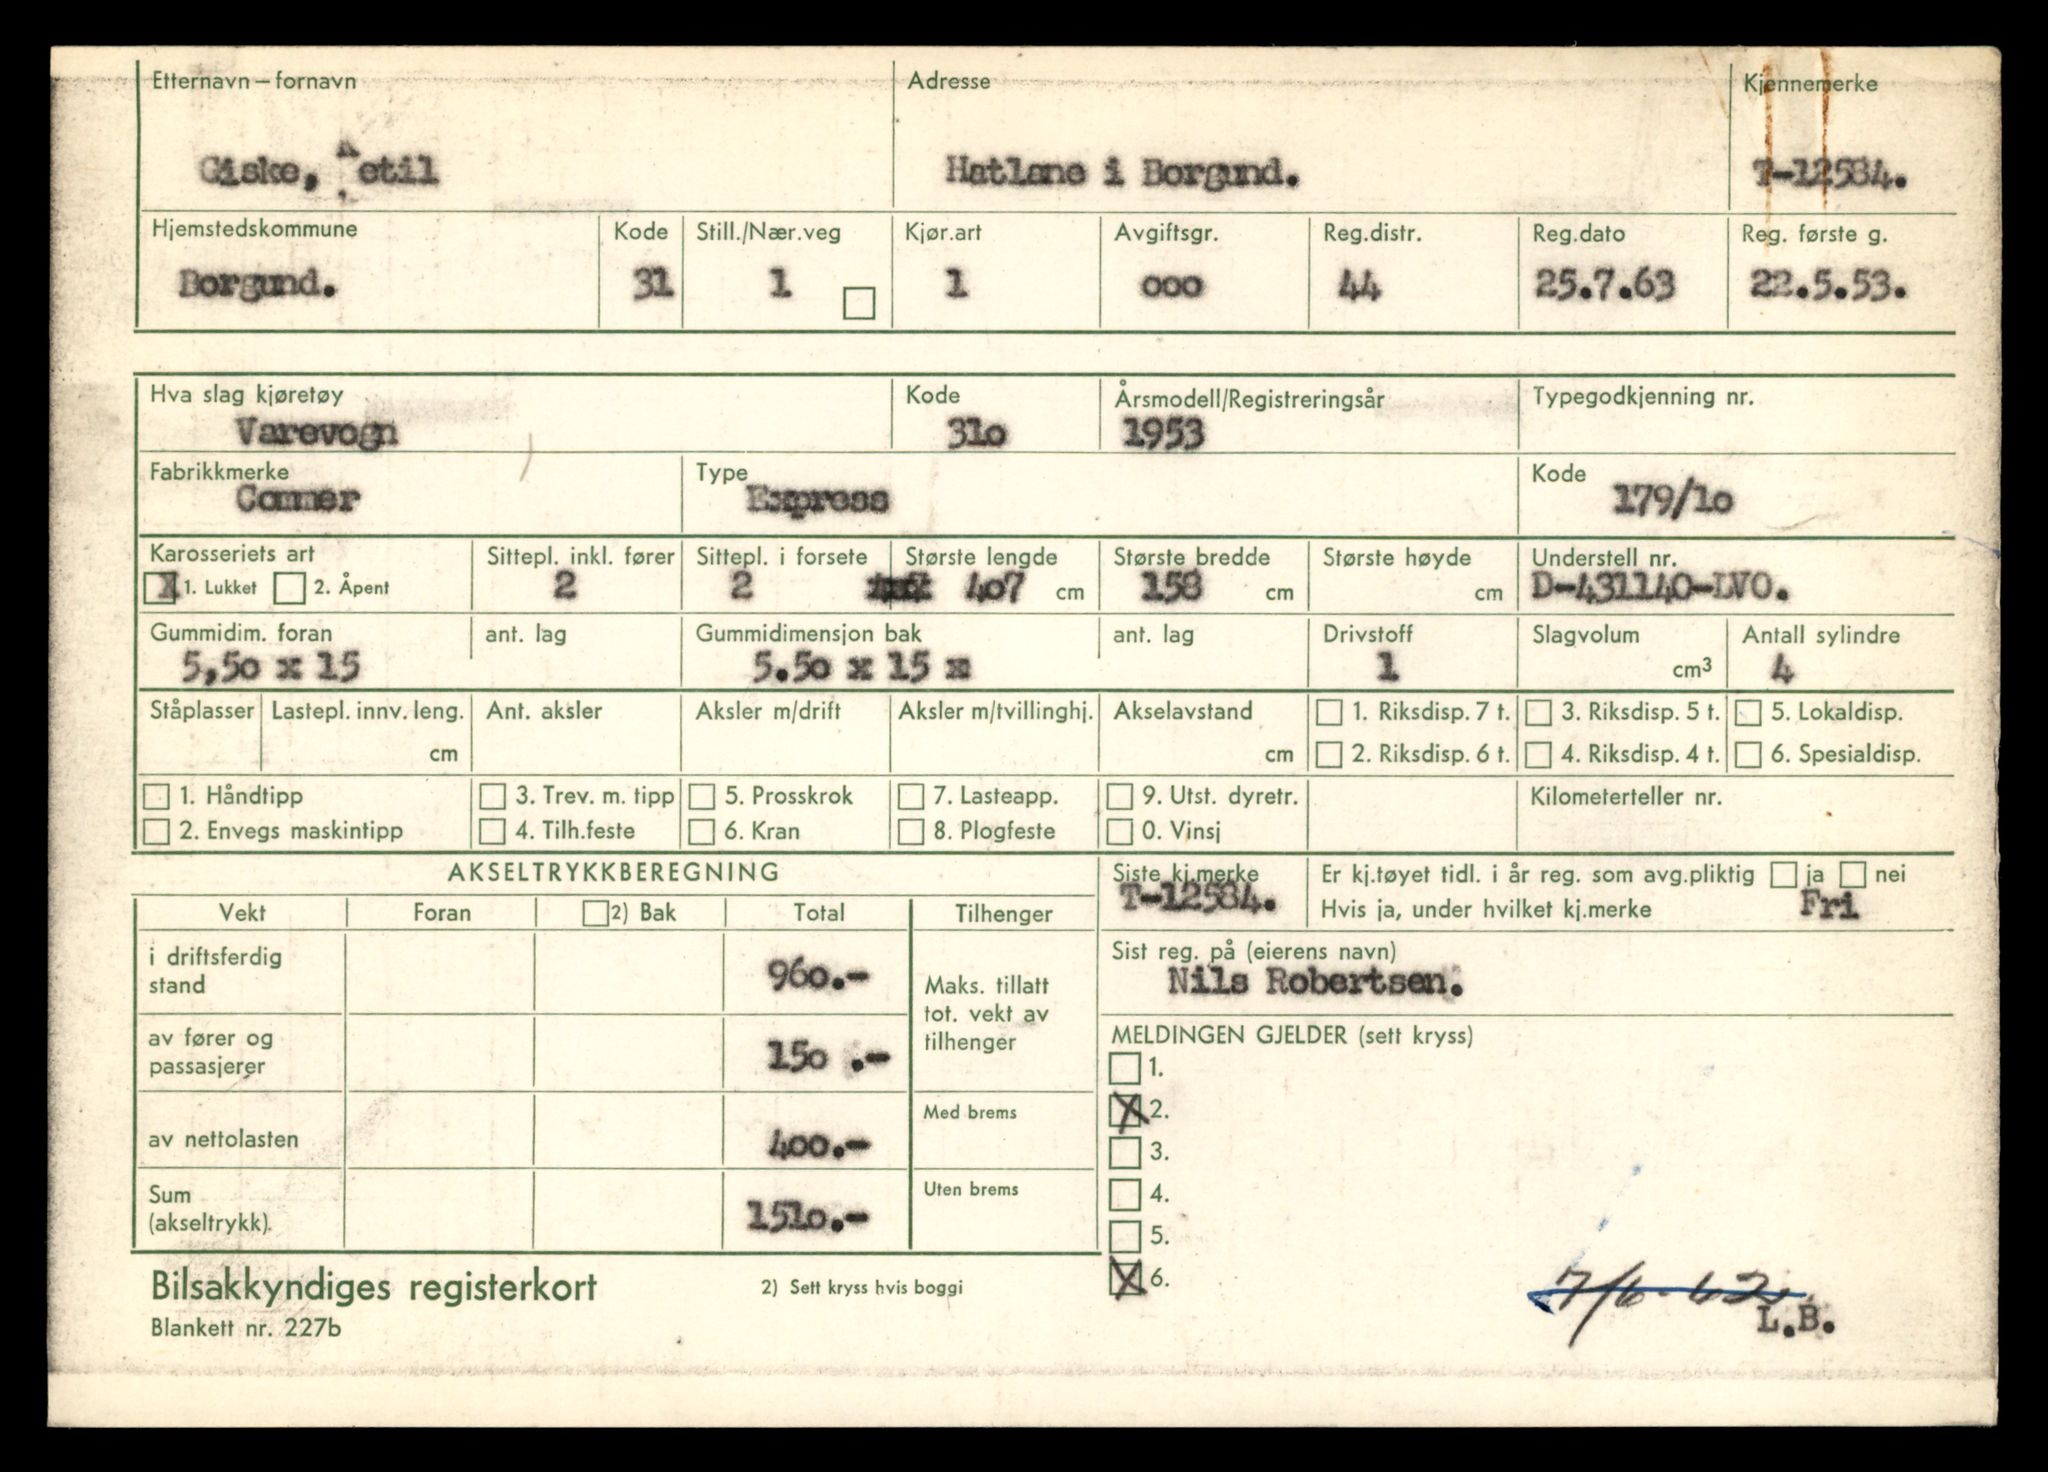 Etternavn – fornavn Adresse Kjennemerke
Giske, Ketil Hatlane i Borgund. T-12584.
Hjemstedskommune Kode Still./Nær.veg Kjør.art Avgiftsgr. Reg.distr. Reg.dato Reg. første g.
Borgund. 31 1 1 ooo 44 25.7.63 22.5.53.
Hva slag kjøretøy Kode Årsmodell/Registreringsår Typegodkjenning nr.
Varevogn 31o 1953
Fabrikkmerke Type Kode
Commer Express 179/1o
Karosseriets art Sittepl. inkl. fører Sittepl. i forsete Største lengde Største bredde Største høyde Understell nr.
X 1. Lukket 2. Åpent 2 2 4o7 cm 158 cm cm D-431140-LVO.
Gummidim. foran ant. lag Gummidimensjon bak ant. lag Drivstoff Slagvolum Antall sylindre
5,5o x 15 5.5o x 15 x 1 cm³ 4
Ståplasser Lastepl. innv. leng. Ant. aksler Aksler m/drift Aksler m/tvillinghj. Akselavstand 1. Riksdisp. 7 t. 3. Riksdisp. 5 t. 5. Lokaldisp.
cm cm 2. Riksdisp. 6 t. 4. Riksdisp. 4 t. 6. Spesialdisp.
1. Håndtipp 3. Trev. m. tipp 5. Prosskrok 7. Lasteapp. 9. Utst. dyretr. Kilometerteller nr.
2. Envegs maskintipp 4. Tilh.feste 6. Kran 8. Plogfeste 0. Vinsj
AKSELTRYKKBEREGNING Siste kj.merke Er kj.tøyet tidl. i år reg. som avg.pliktig ja nei
T-12584. Hvis ja, under hvilket kj.merke Fri
Vekt Foran 2) Bak Total Tilhenger
i driftsferdig
stand 96o.-
Sist reg. på (eierens navn)
Nils Robertsen.
Maks. tillatt
tot. vekt av
tilhenger
av fører og
passasjerer 15o .-
MELDINGEN GJELDER (sett kryss)
1.
X 2.
3.
4.
5.
X 6.
av nettolasten 4oo.- Med brems
Sum
(akseltrykk). 151o.- Uten brems
7/6-62
L.B.
Bilsakkyndiges registerkort 2) Sett kryss hvis boggi
Blankett nr. 227b